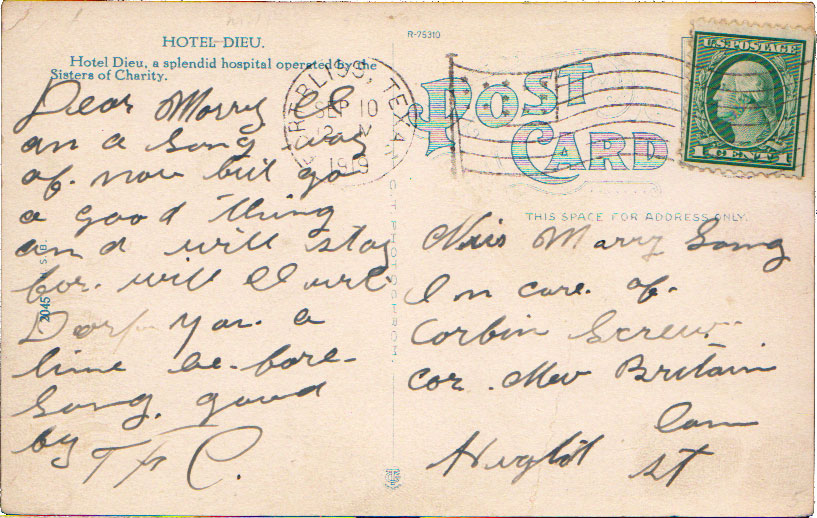 HOTEL DIEU.
Hotel Dieu, a splendid hospital operated by the
Sisters of Charity.
Dear Marry
am a long way
of. now but got
a good thing
and will stay
for. will
you. a
line be-fore-
long, good
by T F C.
2045
R-75310
FORT BLISS, TEXAS
SEP 10
1919
POST
CARD
THIS SPACE FOR ADDRESS ONLY.
U.S. POSTAGE
1 CENT 1
C.T. PHOTOCHROM.
Marry
In care. of.
Corbin Screw.
cor. New Britain
Conn
st